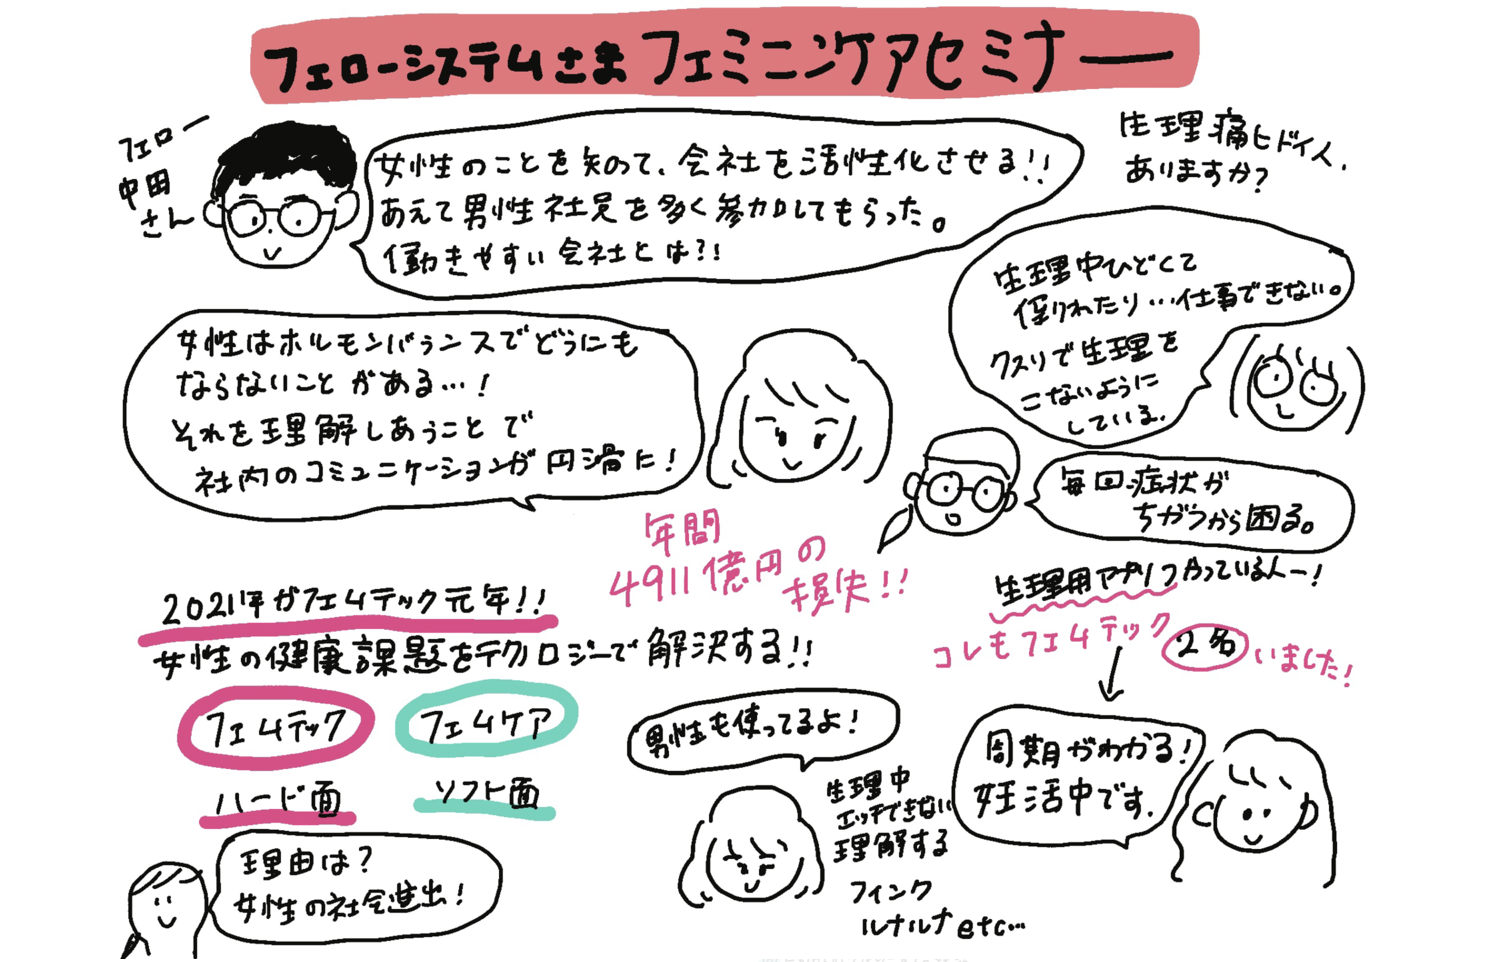 フェローシステムさま フェミニンケアセミナー
フェロー
中田
さん
女性のことを知って、会社を活性化させる!!
あえて男性社員を多く参加してもらった。
働きやすい会社とは?!
生理痛ヒドイ人、
ありますか?
生理中ひどくて
倒れたり…仕事できない。
クスリで生理を
こないように
している。
女性はホルモンバランスでどうにも
ならないことがある…!
それを理解しあうことで
社内のコミュニケーションが円滑に!
毎回症状が
ちがうから困る。
年間
4911億円の
損失!!
生理用アプリつかっている人ー!
コレもフェムテック 2名 いました!
2021年がフェムテック元年!!
女性の健康課題をテクノロジーで解決する!!
フェムテック
フェムケア
ハード面
ソフト面
理由は?
女性の社会進出!
男性も使ってるよ!
生理中
エッチできない
理解する
フィンク
ルナルナetc…
周期がわかる!
妊活中です.